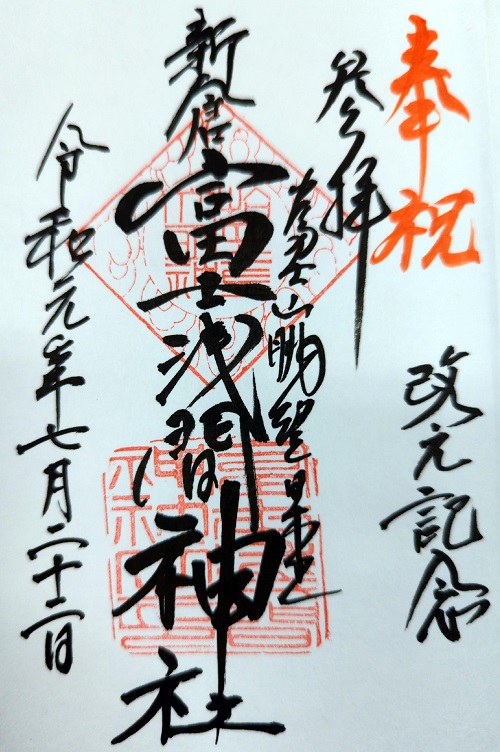 奉祝
改元記念
参拝
富士山眺望星
新倉
富士浅間神社
令和元年七月二十二日